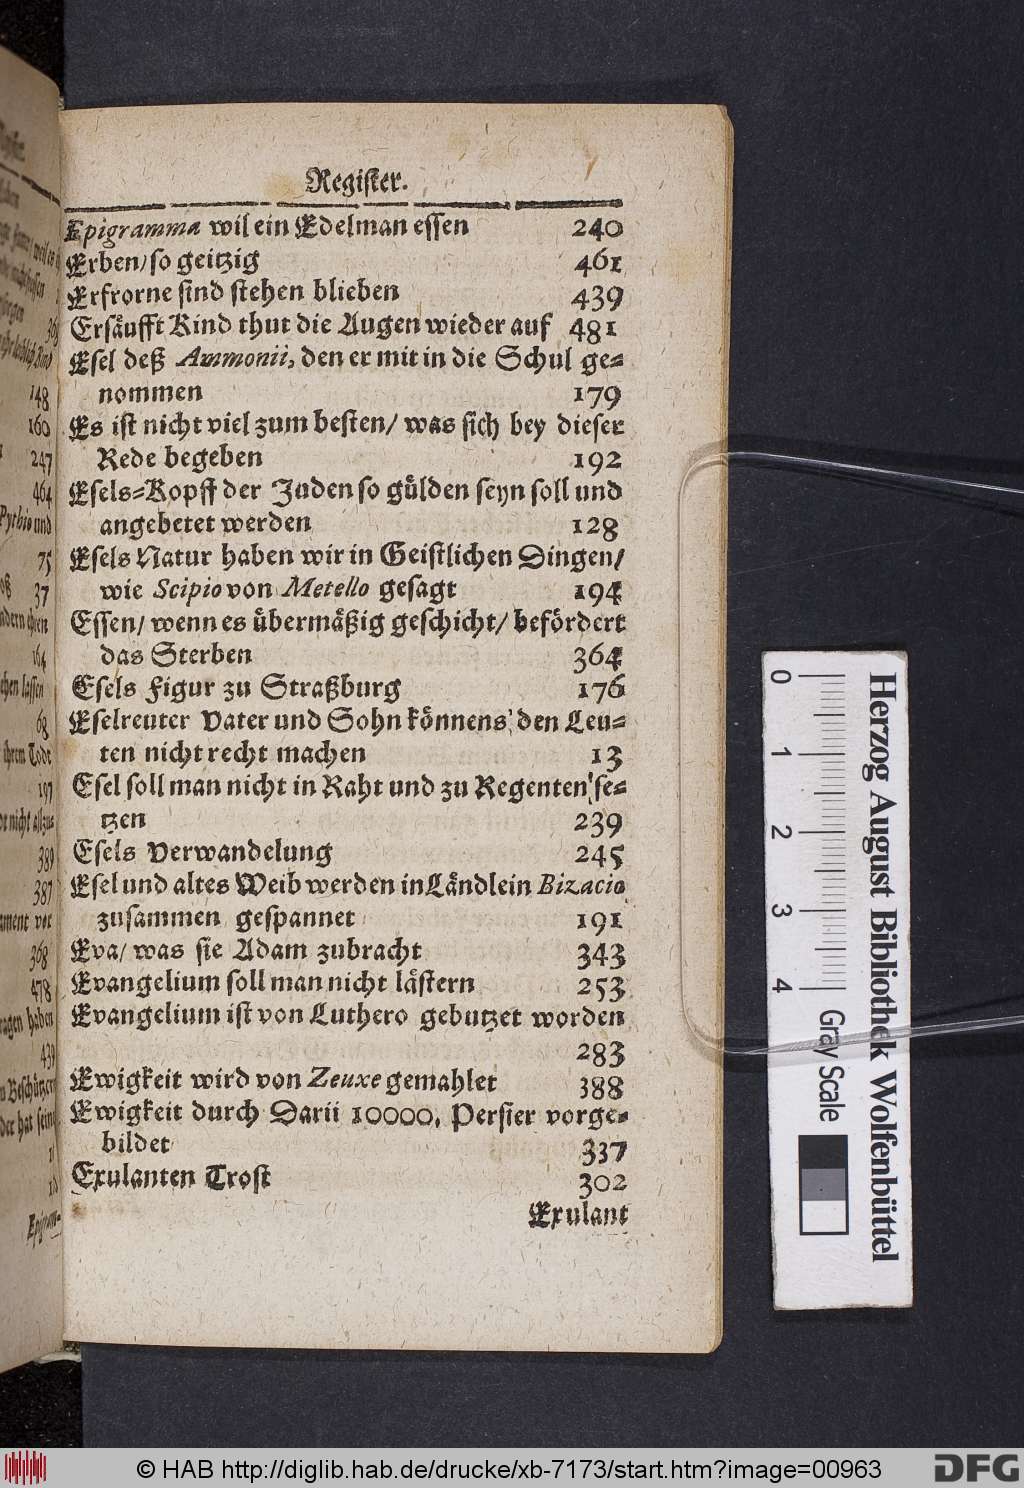 Register.
Epigramma wil ein Edelman essen 240
Erben/ so geitzig 461
Erfrorne sind stehen blieben 439
Ersäufft Kind thut die Augen wieder auf 481
Esel deß Ammonii, den er mit in die Schul ge=
nommen 179
Es ist nicht viel zum besten/ was sich bey dieser
Rede begeben 192
Esels=Kopff der Juden so gülden seyn soll und
angebetet werden 128
Esels Natur haben wir in Geistlichen Dingen/
wie Scipio von Metello gesagt 194
Essen/ wenn es übermäßig geschicht/ befördert
das Sterben 364
Esels Figur zu Straßburg 176
Eselreuter Vater und Sohn können's den Leu=
ten nicht recht machen 13
Esel soll man nicht in Raht und zu Regenten se=
tzen 239
Esels Verwandelung 245
Esel und altes Weib werden in Ländlein Bizacio
zusammen gespannet 191
Eva/ was sie Adam zubracht 343
Evangelium soll man nicht lästern 253
Evangelium ist von Luthero gebutzet worden
283
Ewigkeit wird von Zeuxe gemahlet 388
Ewigkeit durch Darii 10000. Persier vorge=
bildet 337
Exulanten Trost 302
Exulant
148
160
247
464
Pythio und
75
37
164
68
ihrem Todt
197
389
387
368
478
439
Herzog August Bibliothek Wolfenbüttel
0 1 2 3 4
Gray Scale
© HAB http://diglib.hab.de/drucke/xb-7173/start.htm?image=00963
DFG